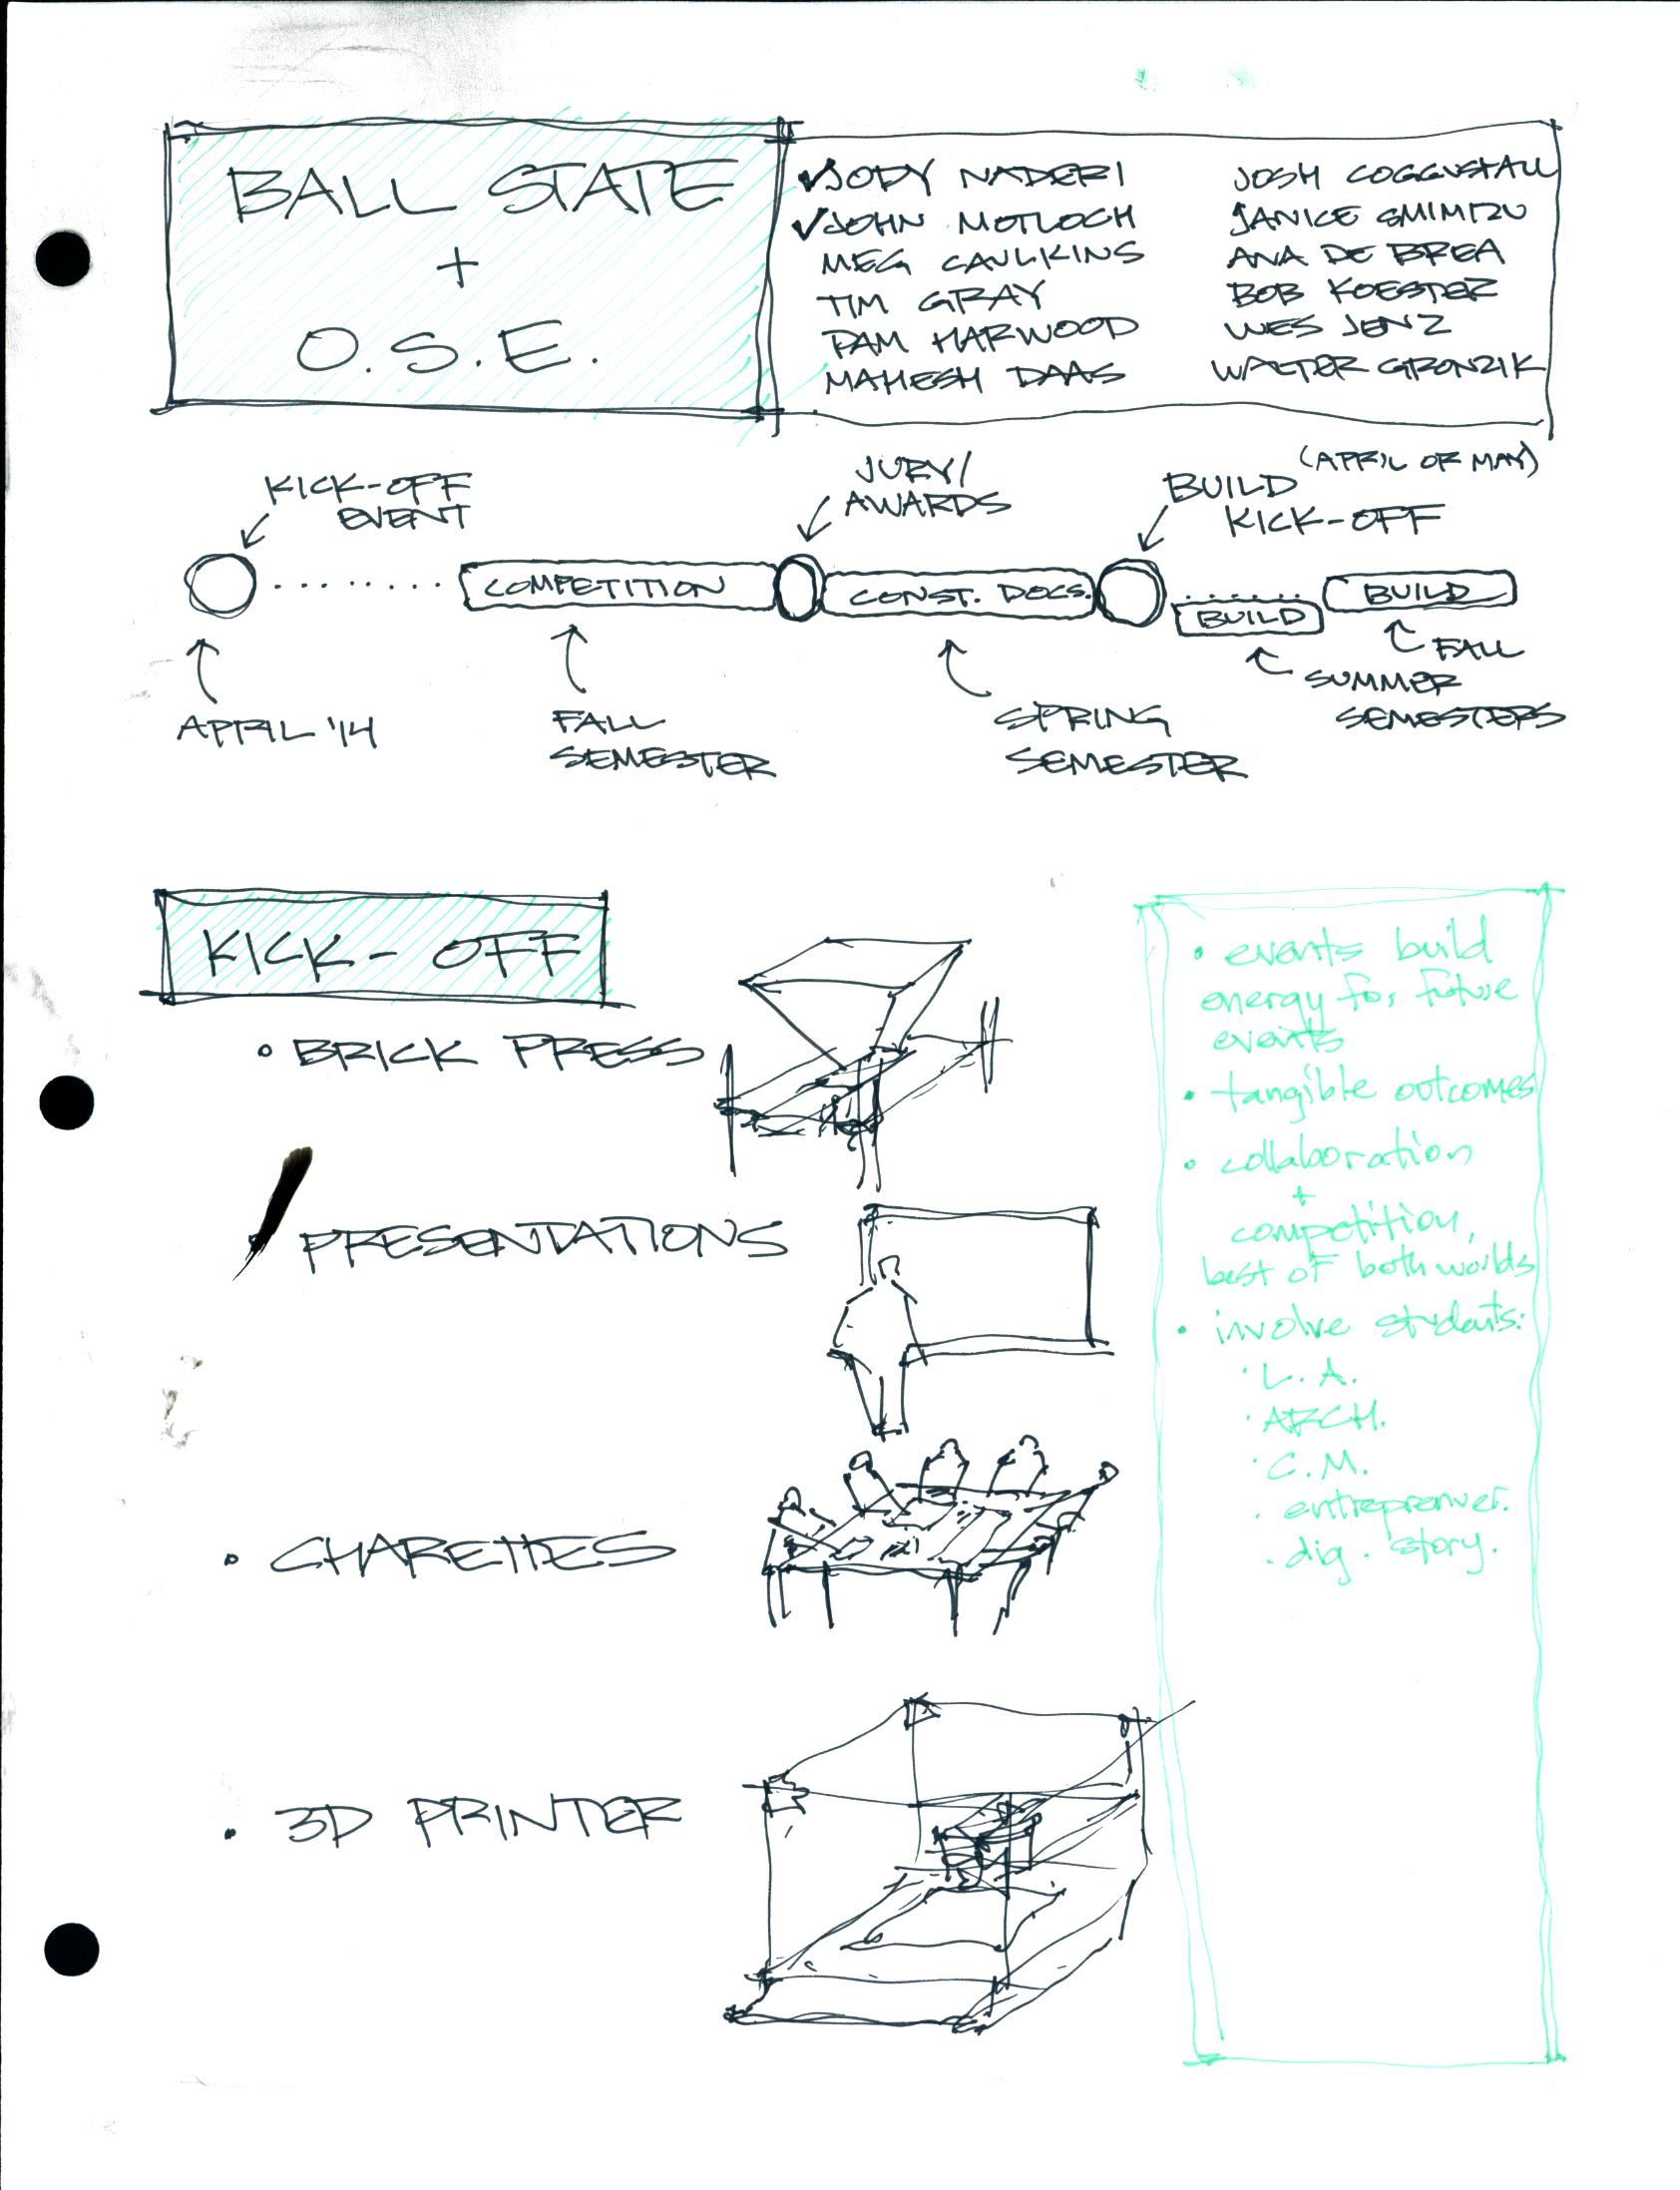 BALL STATE
+
O.S.E.
JODY NADERI
JOHN MOTLOCH
MEG CAULKINS
TIM GRAY
PAM HARWOOD
MAHESH DAAS
JOSH COGGUSTALL
JANICE SHIMIZU
ANA DE BREA
BOB KOESTER
WES JENZ
WALTER GRONZIK
KICK-OFF
EVENT
JURY/
AWARDS
(APRIL OR MAY)
BUILD
KICK-OFF
COMPETITION
CONST. DOCS.
BUILD
BUILD
APRIL '14
FALL
SEMESTER
SPRING
SEMESTER
FALL
SUMMER
SEMESTERS
KICK-OFF
• BRICK PRESS
PRESENTATIONS
• CHARETTES
• 3D PRINTER
• events build
energy for future
events
• tangible outcomes
• collaboration
+
competition,
best of both worlds
• involve students:
· L.A.
· ARCH.
· C.M.
· entreprenver.
· dig. story.